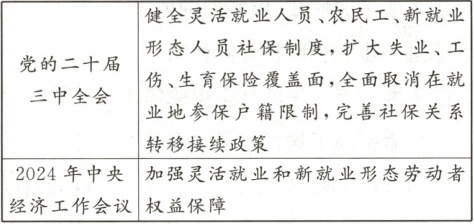 党的二十届
三中全会
健全灵活就业人员、农民工、新就业
形态人员社保制度，扩大失业、工
伤、生育保险覆盖面，全面取消在就
业地参保户籍限制，完善社保关系
转移接续政策
2024年中央
经济工作会议
加强灵活就业和新就业形态劳动者
权益保障